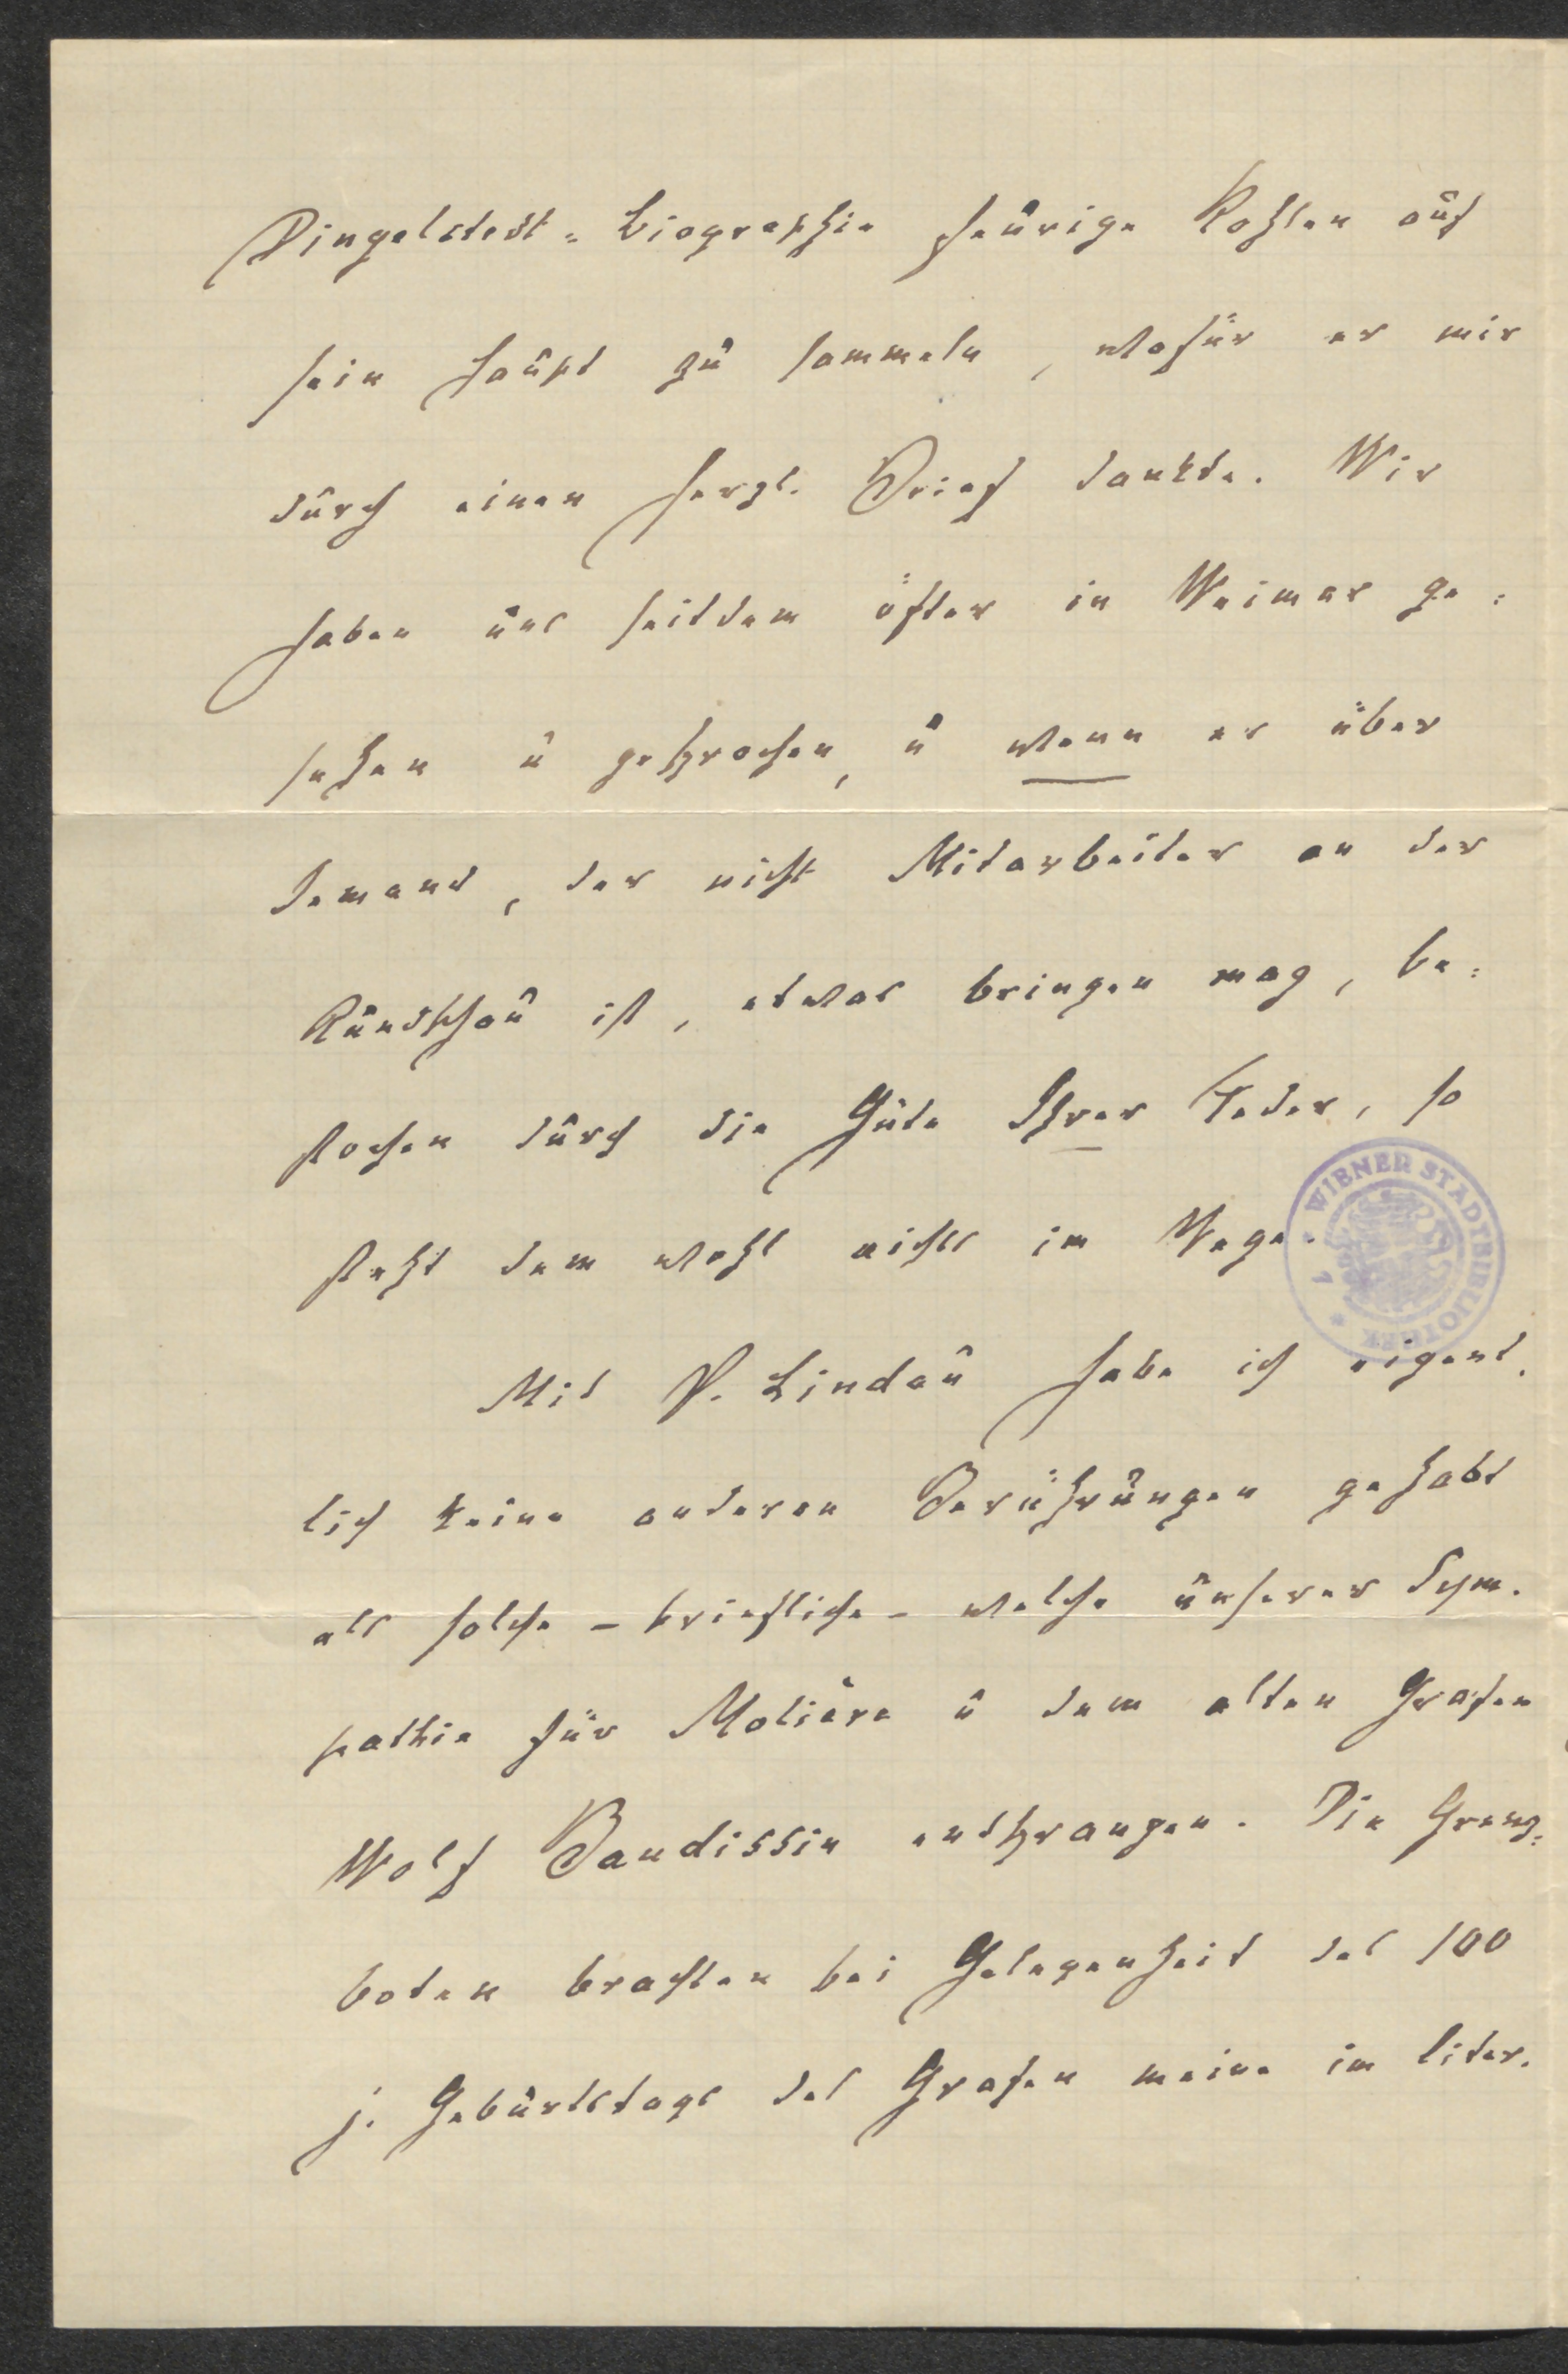 Dingelstedt-Biographie feurige Kohlen auf
sein Haupt zu sammeln, wofür er mir
durch einen herzl. Brief dankte. Wir
haben uns seitdem öfter in Weimar ge-
sehen u gesprochen, u wenn er über
Jemand, der nicht Mitarbeiter an der
Rundschau ist, etwas bringen mag, be-
stochen durch die Güte Ihrer Feder, so
steht dem wohl nichts im Wege.
WIENER STADTBIBLIOTHEK
Mit P. Lindau habe ich eigent-
lich keine anderen Berührungen gehabt
als solche – briefliche – welche unserer Sym-
pathie für Molière u dem alten Grafen
Wolf Baudissin entsprangen. Die Grenz-
boten brachten bei Gelegenheit des 100
j. Geburtstags des Grafen meine im liter.